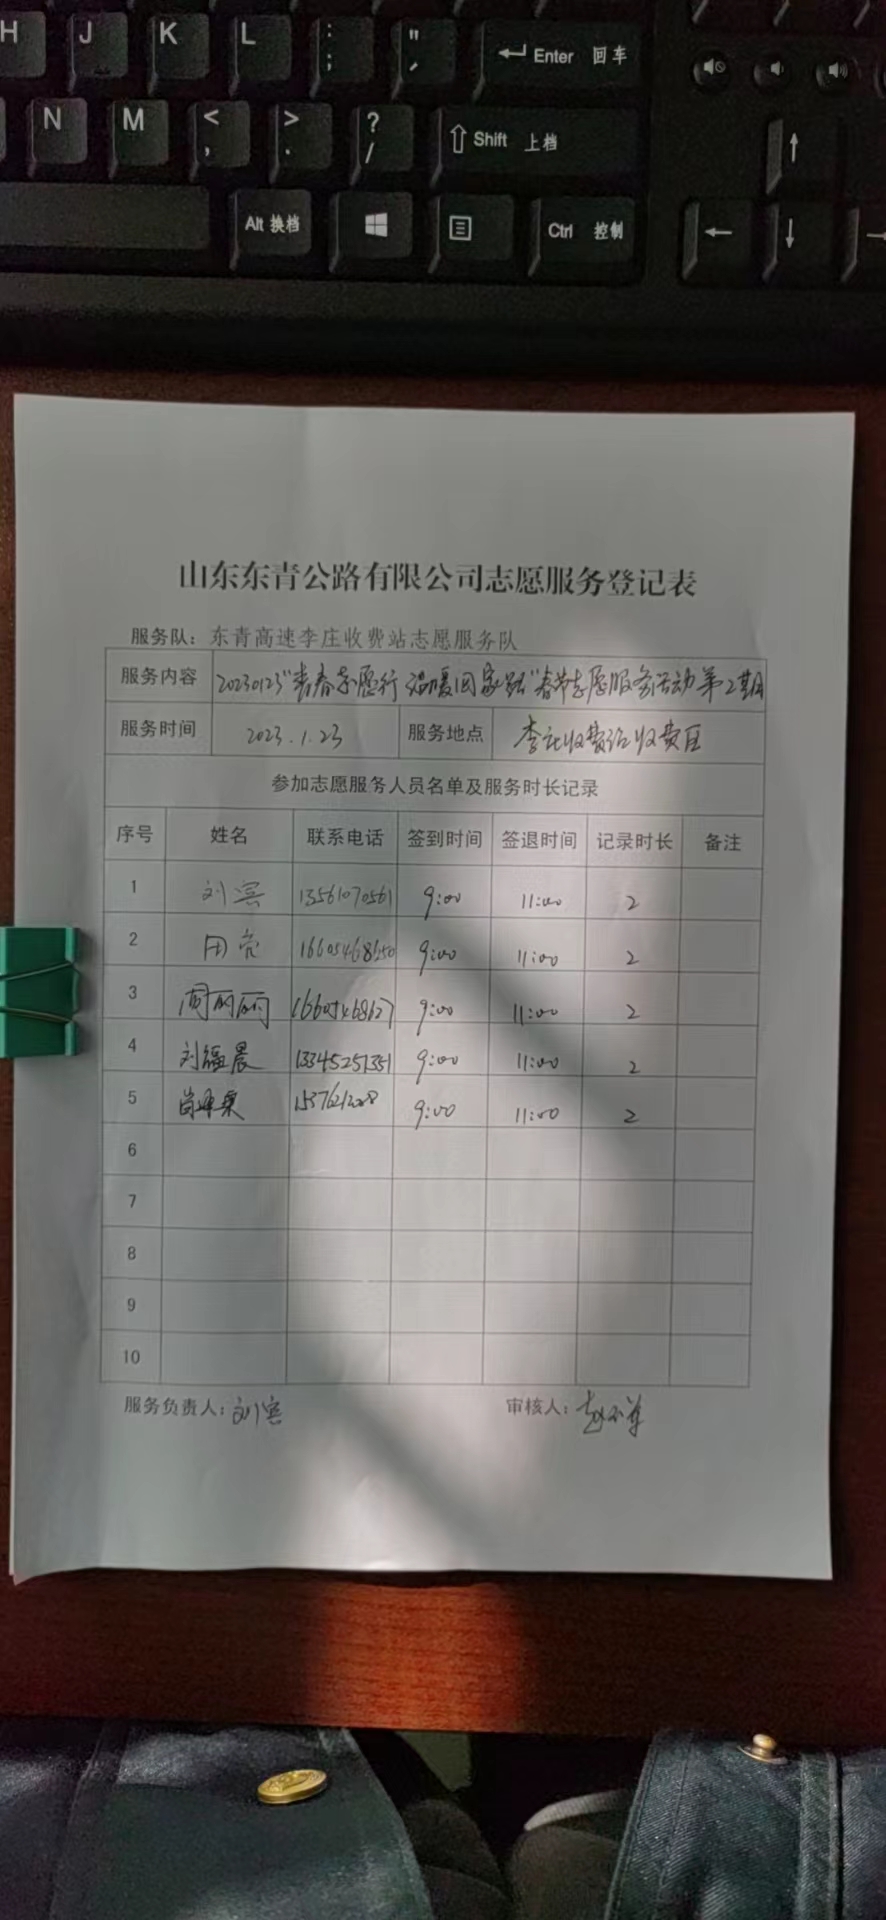 H J K L : ; " ' Enter 回车
N M < , > . ? / Shift 上档
Alt 换档 Ctrl 控制
山东东青公路有限公司志愿服务登记表
服务队：东青高速李庄收费站志愿服务队
服务内容 20230123"青春志愿行 温暖回家路"春节志愿服务活动第2期
服务时间 2023.1.23 服务地点 李庄收费站收费区
参加志愿服务人员名单及服务时长记录
序号 姓名 联系电话 签到时间 签退时间 记录时长 备注
1 刘宾 13561070561 9:00 11:00 2
2 9:00 11:00 2
3 周丽丽 9:00 11:00 2
4 刘福晨 13345251351 9:00 11:00 2
5 9:00 11:00 2
6
7
8
9
10
服务负责人：刘宾 审核人：